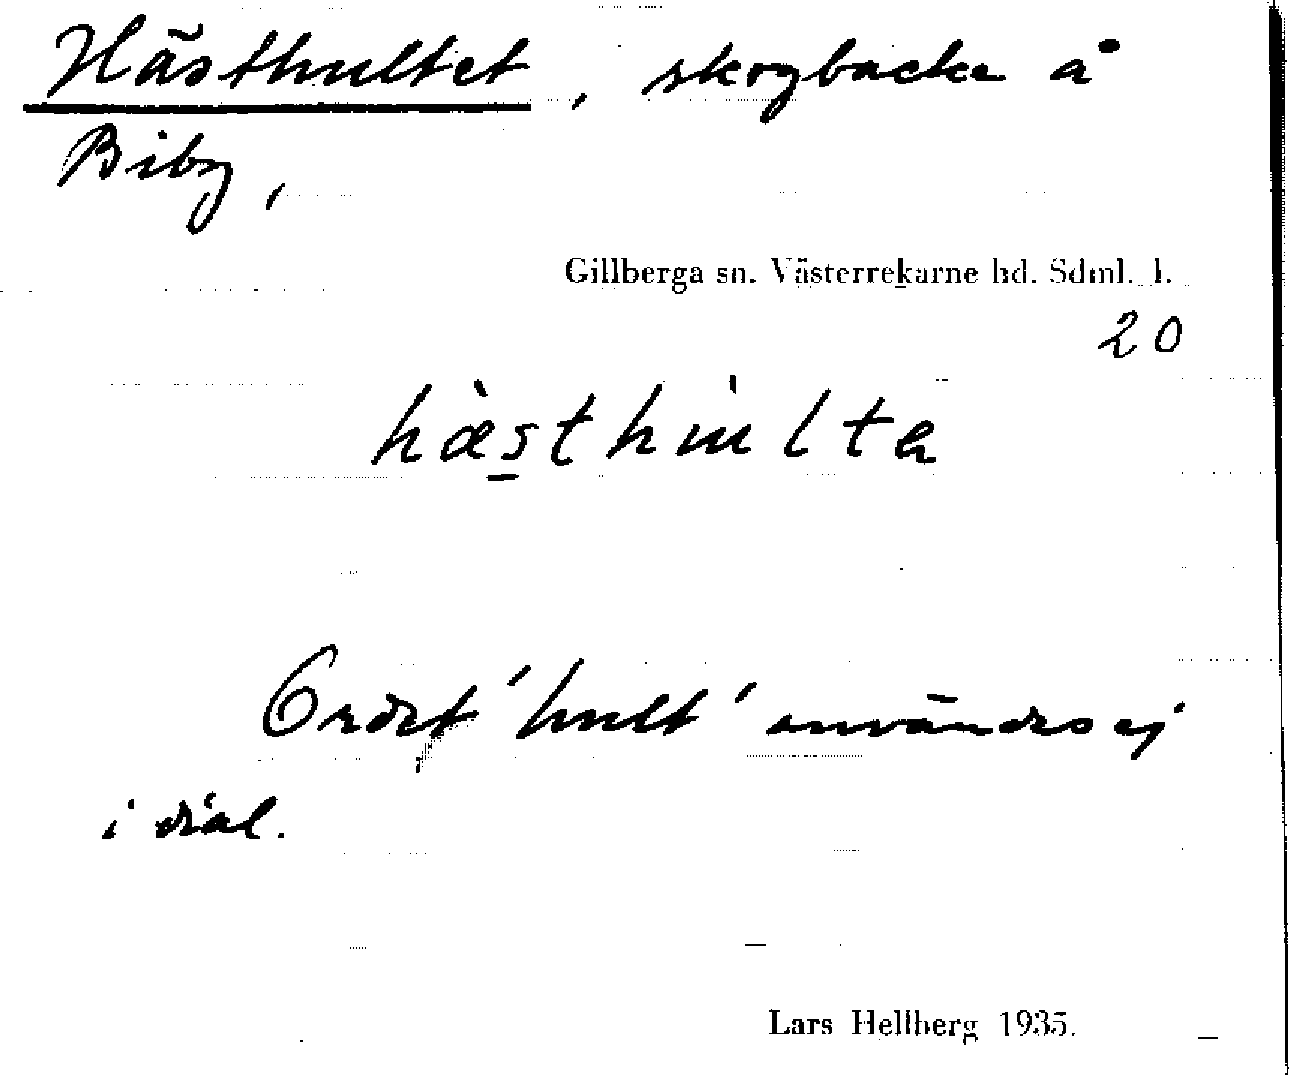 Hästhultet, skogbacke å
Biby,
Gillberga sn. Västerrekarne hd. Sdml. l.
20
hæ̀sthu̇lta
Ordet 'hult' användes ej
i dial.
Lars Hellberg 1935.